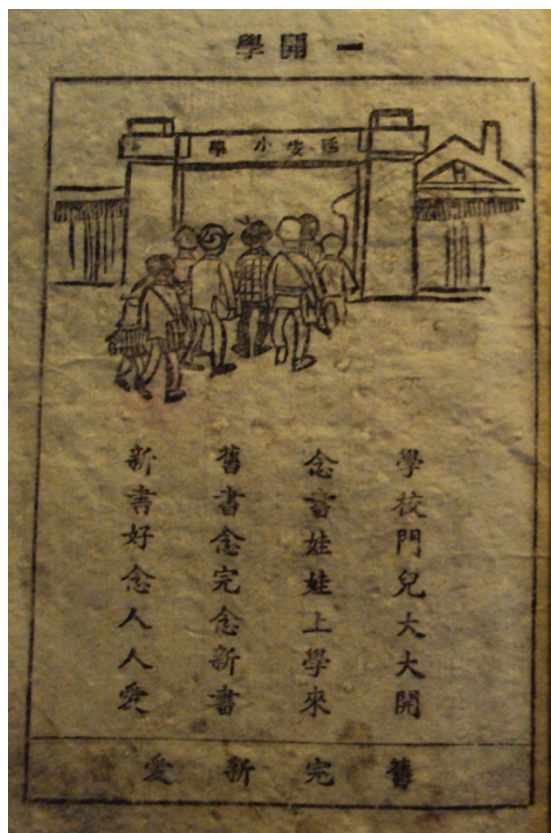 一 開學
延安小學
學校門兒大大開
念書娃娃上學來
舊書念完念新書
新書好念人人愛
舊 完 新 愛